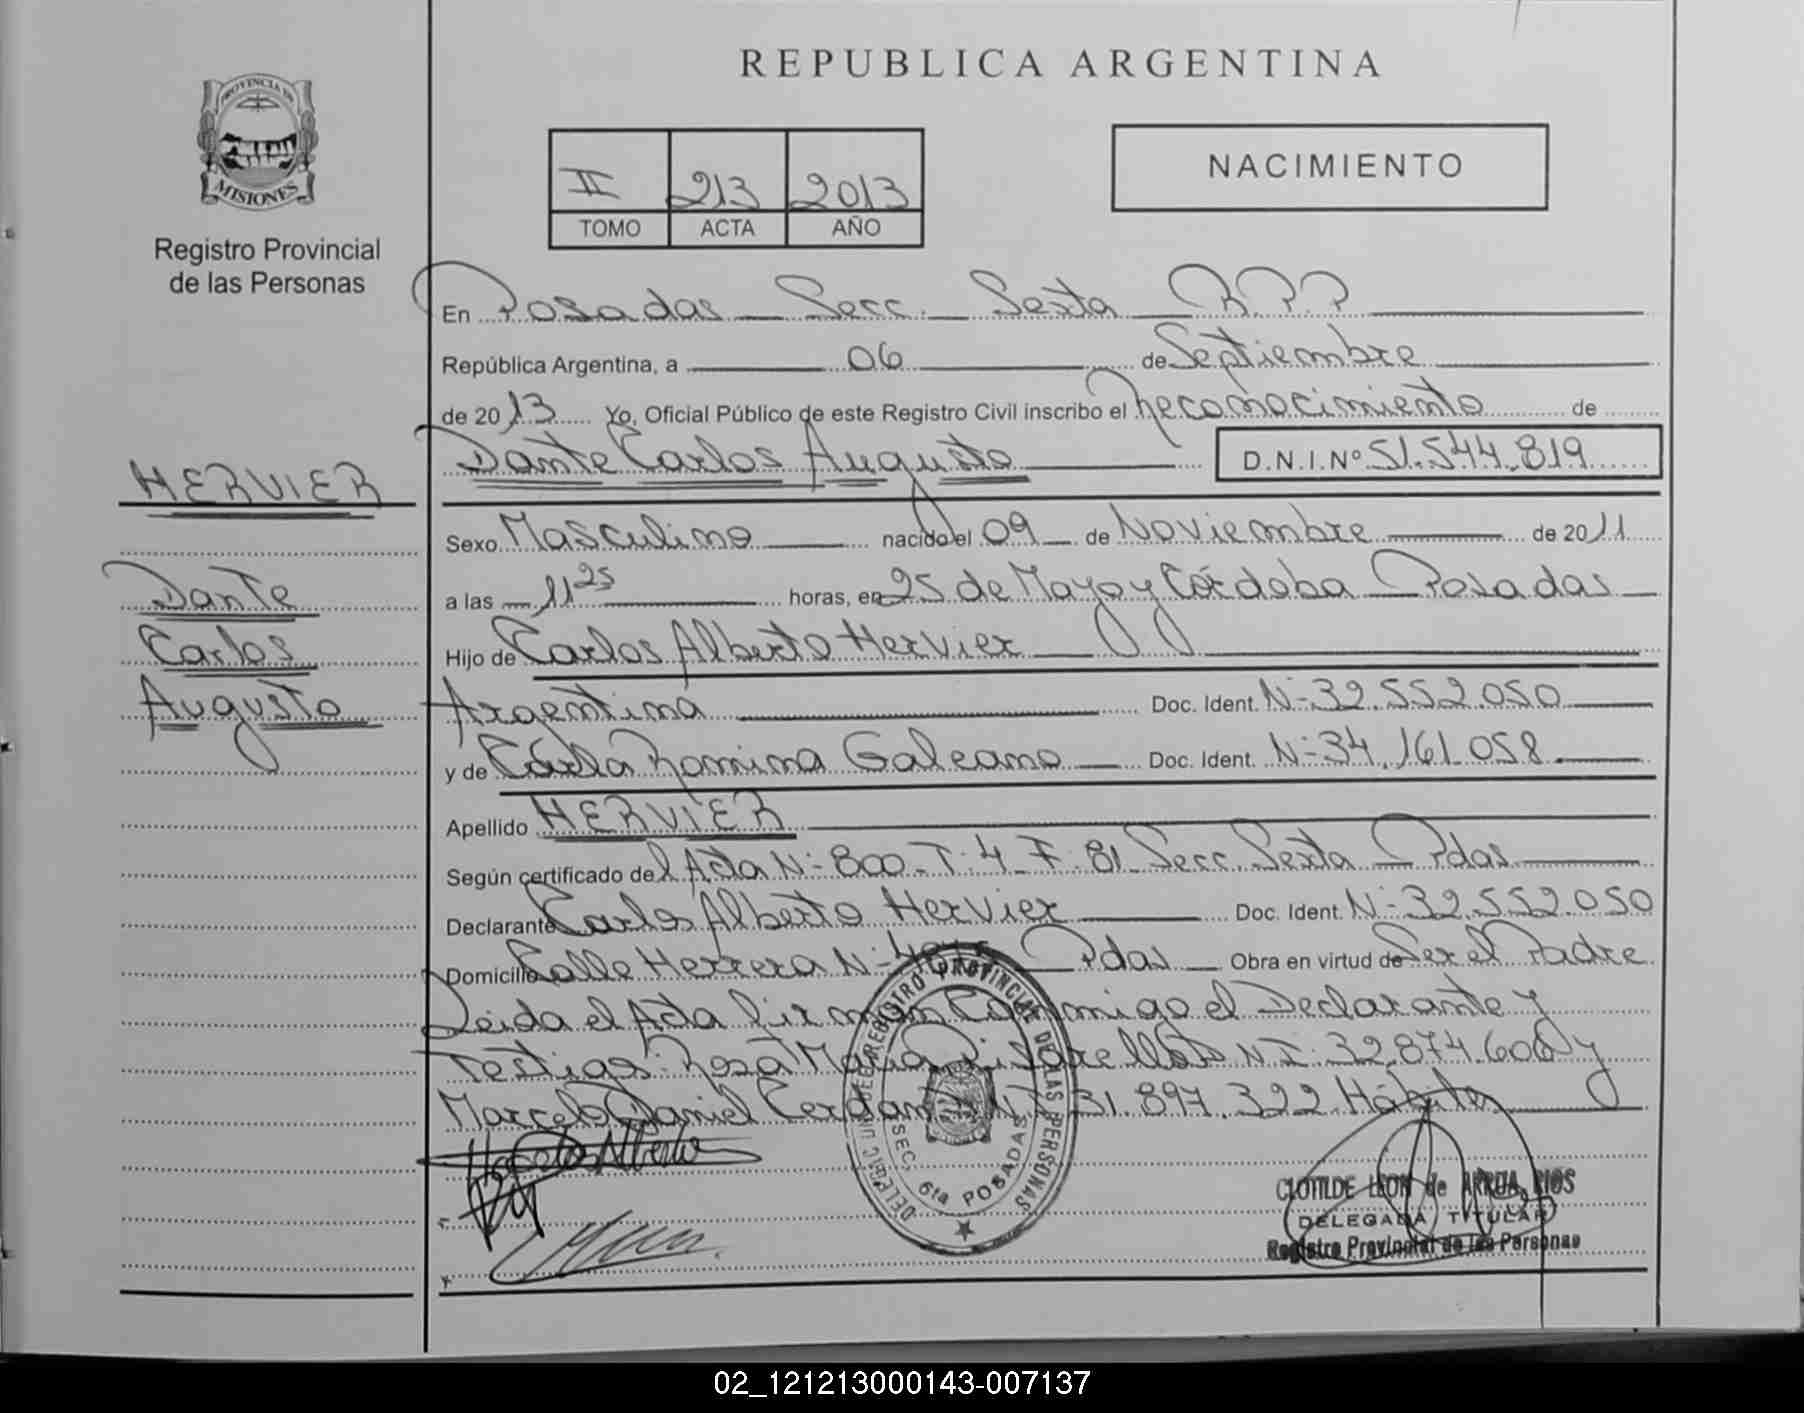 REPUBLICA ARGENTINA
PROVINCIA DE
MISIONES
Registro Provincial
de las Personas
II 213 2013
TOMO ACTA AÑO
NACIMIENTO
En Posadas Secc. Sexta R.P.P
República Argentina, a 06 de Septiembre
de 2013 Yo, Oficial Público de este Registro Civil inscribo el reconocimiento de
Dante Carlos Augusto D.N.I.Nº 51.544.819
HERVIER
Dante
Carlos
Augusto
Sexo Masculino nacido el 09 de Noviembre de 2011
a las 11 25 horas, en 25 de Mayo y Córdoba Posadas
Hijo de Carlos Alberto Hervier
Argentina Doc. Ident. Nº 32.552.050
y de Carla Romina Galeano Doc. Ident. Nº 34.161.058
Apellido HERVIER
Según certificado del Acta Nº 800 T: 4 F: 81 Secc. Sexta Pdas
Declarante Carlos Alberto Hervier Doc. Ident. Nº 32.552.050
Domicilio Calle Herrera Nº Pdas Obra en virtud de Ser el Padre
Leida el Acta firman Conmigo el Declarante y
Testigos: Rosa Maria N I: 32.874.606 y
Marcelo Daniel 31.897.322 Hábiles
REGISTRO PROVINCIAL DE LAS PERSONAS
SEC. 6ta POSADAS
CLOTILDE LEON de RIOS
DELEGADA TITULAR
Registro Provincial de las Personas
02_121213000143-007137